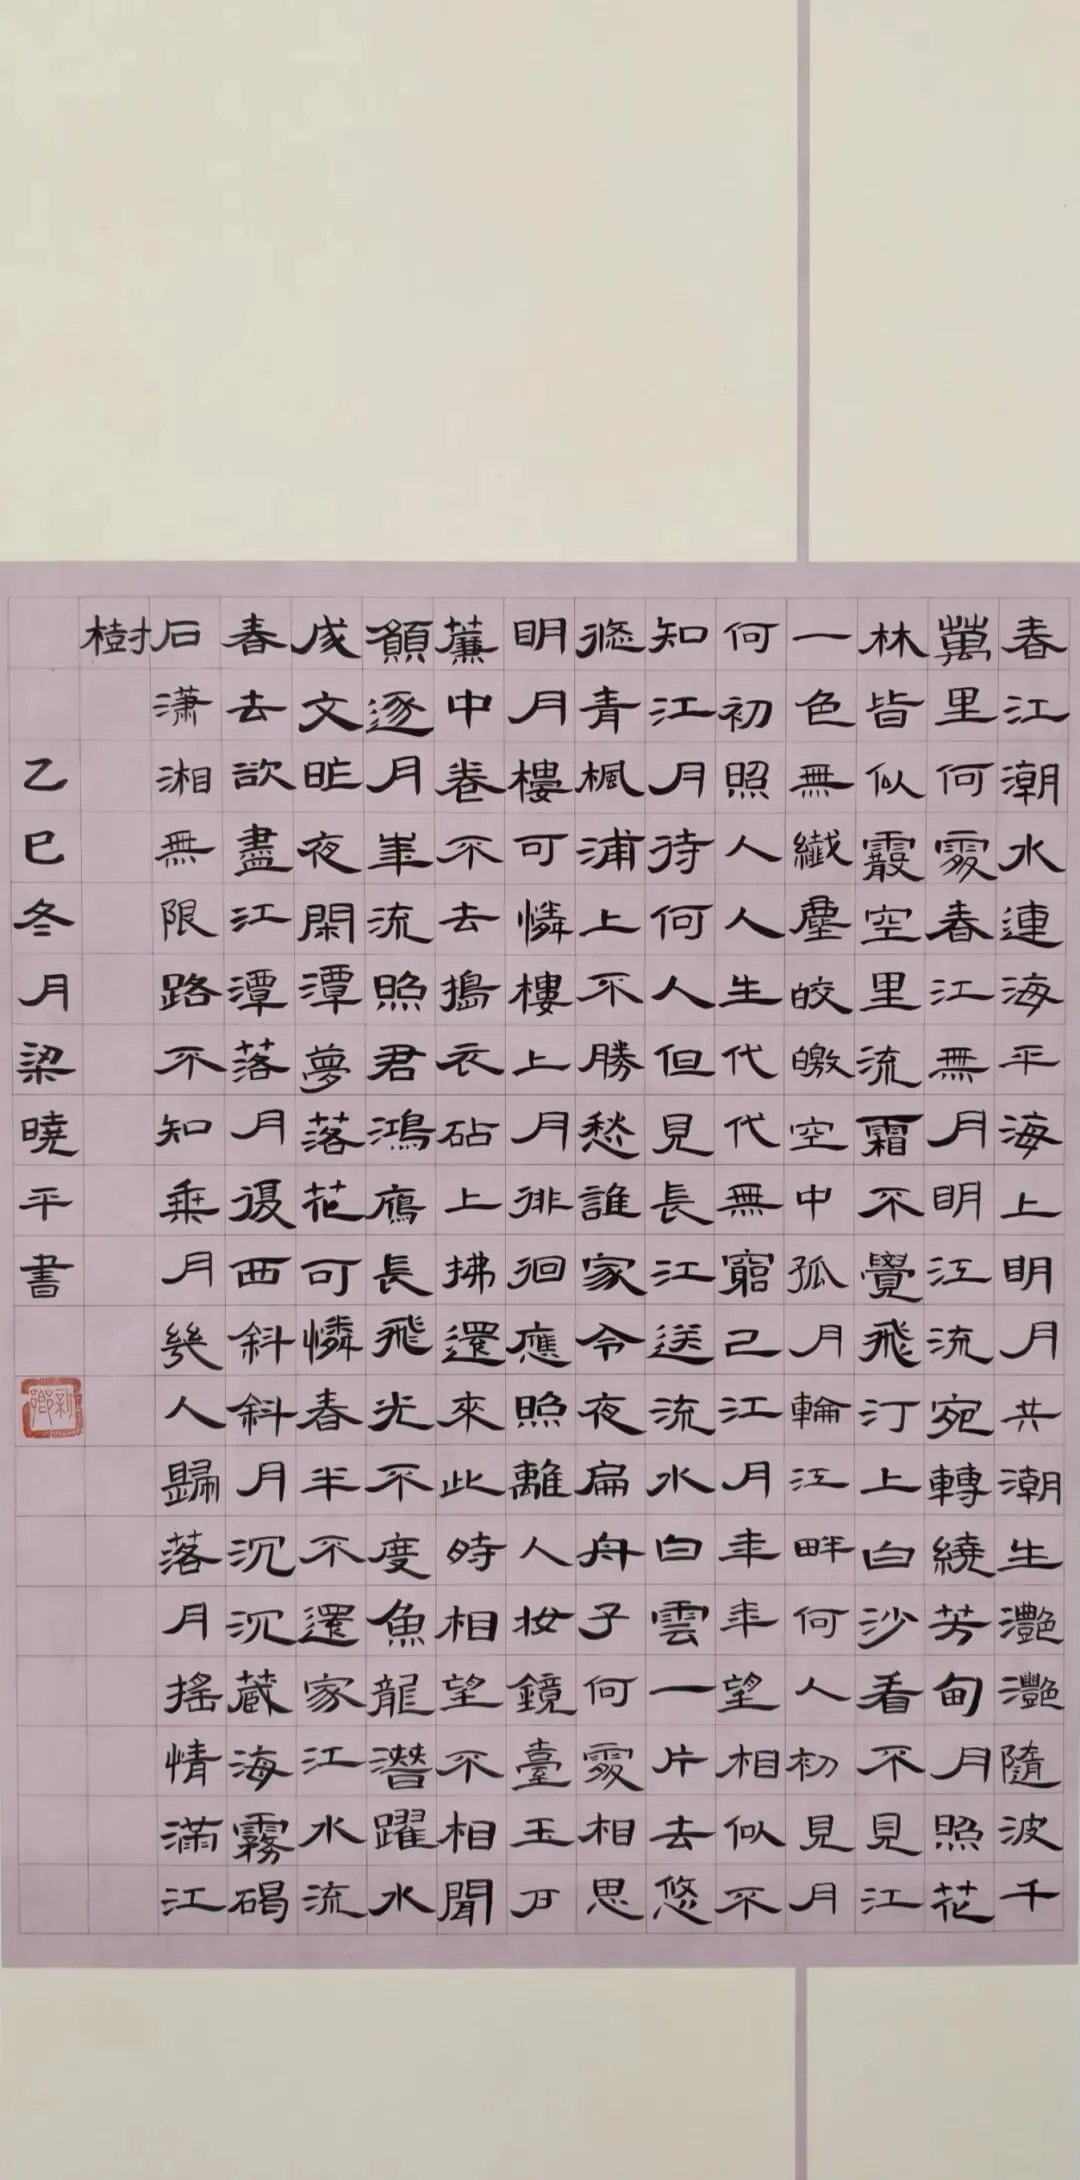 春江潮水連海平海上明月共潮生灩灩隨波千
萬里何處春江無月明江流宛轉繞芳甸月照花
林皆似霰空里流霜不覺飛汀上白沙看不見江
一色無纖塵皎皦空中孤月輪江畔何人初見月
何初照人人生代代無窮已江月年年望相似不
知江月待何人但見長江送流水白雲一片去悠
悠青楓浦上不勝愁誰家今夜扁舟子何處相思
明月樓可憐樓上月徘徊應照離人妝鏡臺玉戶
簾中卷不去搗衣砧上拂還來此時相望不相聞
願逐月華流照君鴻雁長飛光不度魚龍潛躍水
成文昨夜閑潭夢落花可憐春半不還家江水流
春去欲盡江潭落月復西斜斜月沉沉藏海霧碣
石瀟湘無限路不知乘月幾人歸落月搖情滿江
樹
乙巳冬月梁曉平書